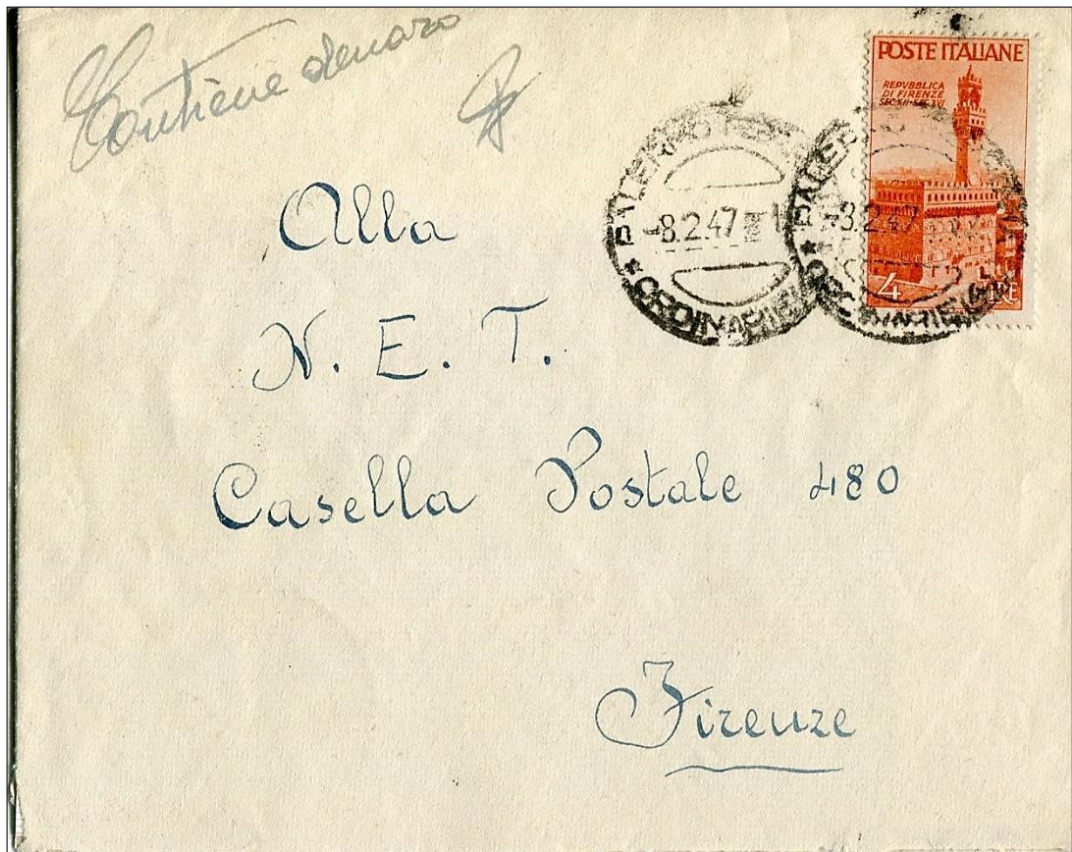 Contiene denaro
POSTE ITALIANE
REPVBBLICA
DI FIRENZE
SEC XII - SEC XVI
PALERMO
-8.2.47
ORDINARIE
-8.2.47
4
Alla
N. E. T.
Casella Postale 480
Firenze